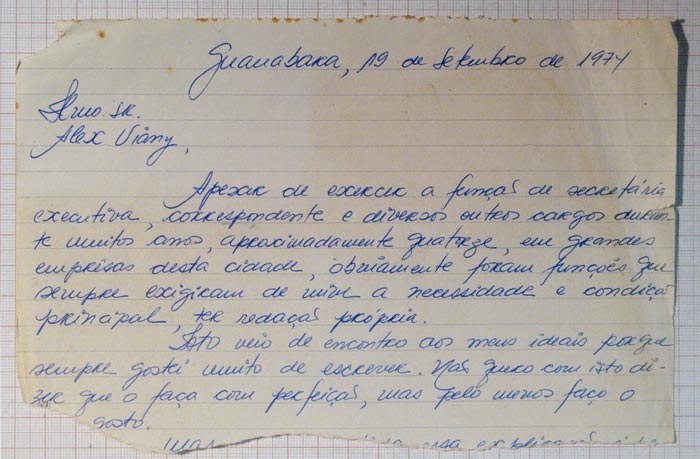 Guanabara, 19 de Setembro de 1974
Ilmo. Sr.
Alex Viany,
Apesar de exercer a função de secretária
executiva, correspondente e diversos outros cargos duran-
te muitos anos, aproximadamente quatorze, em grandes
empresas desta cidade, obviamente foram funções que
sempre exigiram de mim a necessidade e condição
principal, ter redação própria.
Isto veio de encontro aos meus ideais porque
sempre gostei muito de escrever. Não quero com isto di-
zer que o faça com perfeição, mas pelo menos faço o
gosto.